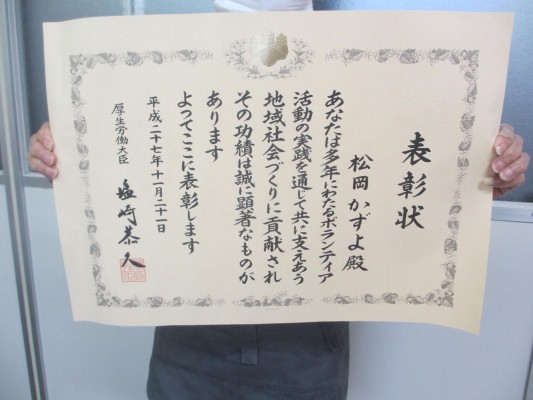 表彰状
松岡かずよ殿
あなたは多年にわたるボランティア
活動の実践を通じて共に支えあう
地域社会づくりに貢献され
その功績は誠に顕著なものが
あります
よってここに表彰します
平成二十七年十一月二十一日
厚生労働大臣 塩崎恭久